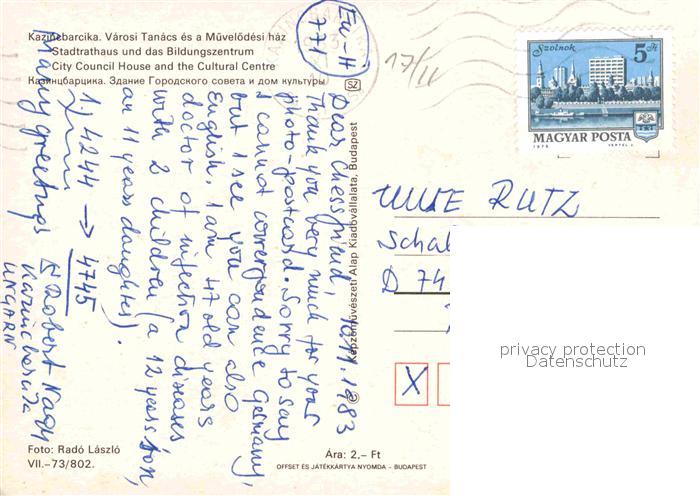 Kazincbarcika. Városi Tanács és a Művelődési ház
Stadtrathaus und das Bildungszentrum
City Council House and the Cultural Centre
Казинцбарцика. Здание Городского совета и дом культуры
SZ
Eu-H
771
17/11
Szolnok
5 Ft
MAGYAR POSTA
1973
VERTEL J.
Dear Chessfriend, 10.11.1983
Thank you very much for your
photo-postcard. Sorry to say
I cannot correspondence Germany,
but I see you can also
English. I am 47 old years
doctor of infection diseases
with 2 children (a 12 years son,
an 11 years daughter).
1.) 4244 → 4745
Many greetings
Robert Nagy
Kazincbarcika
UNGARN
Képzőművészeti Alap Kiadóvállalata, Budapest
UWE RUTZ
Schal
D 74
X
privacy protection
Datenschutz
Foto: Radó László
VII.–73/802.
Ára: 2,– Ft
OFFSET ÉS JÁTÉKKÁRTYA NYOMDA – BUDAPEST